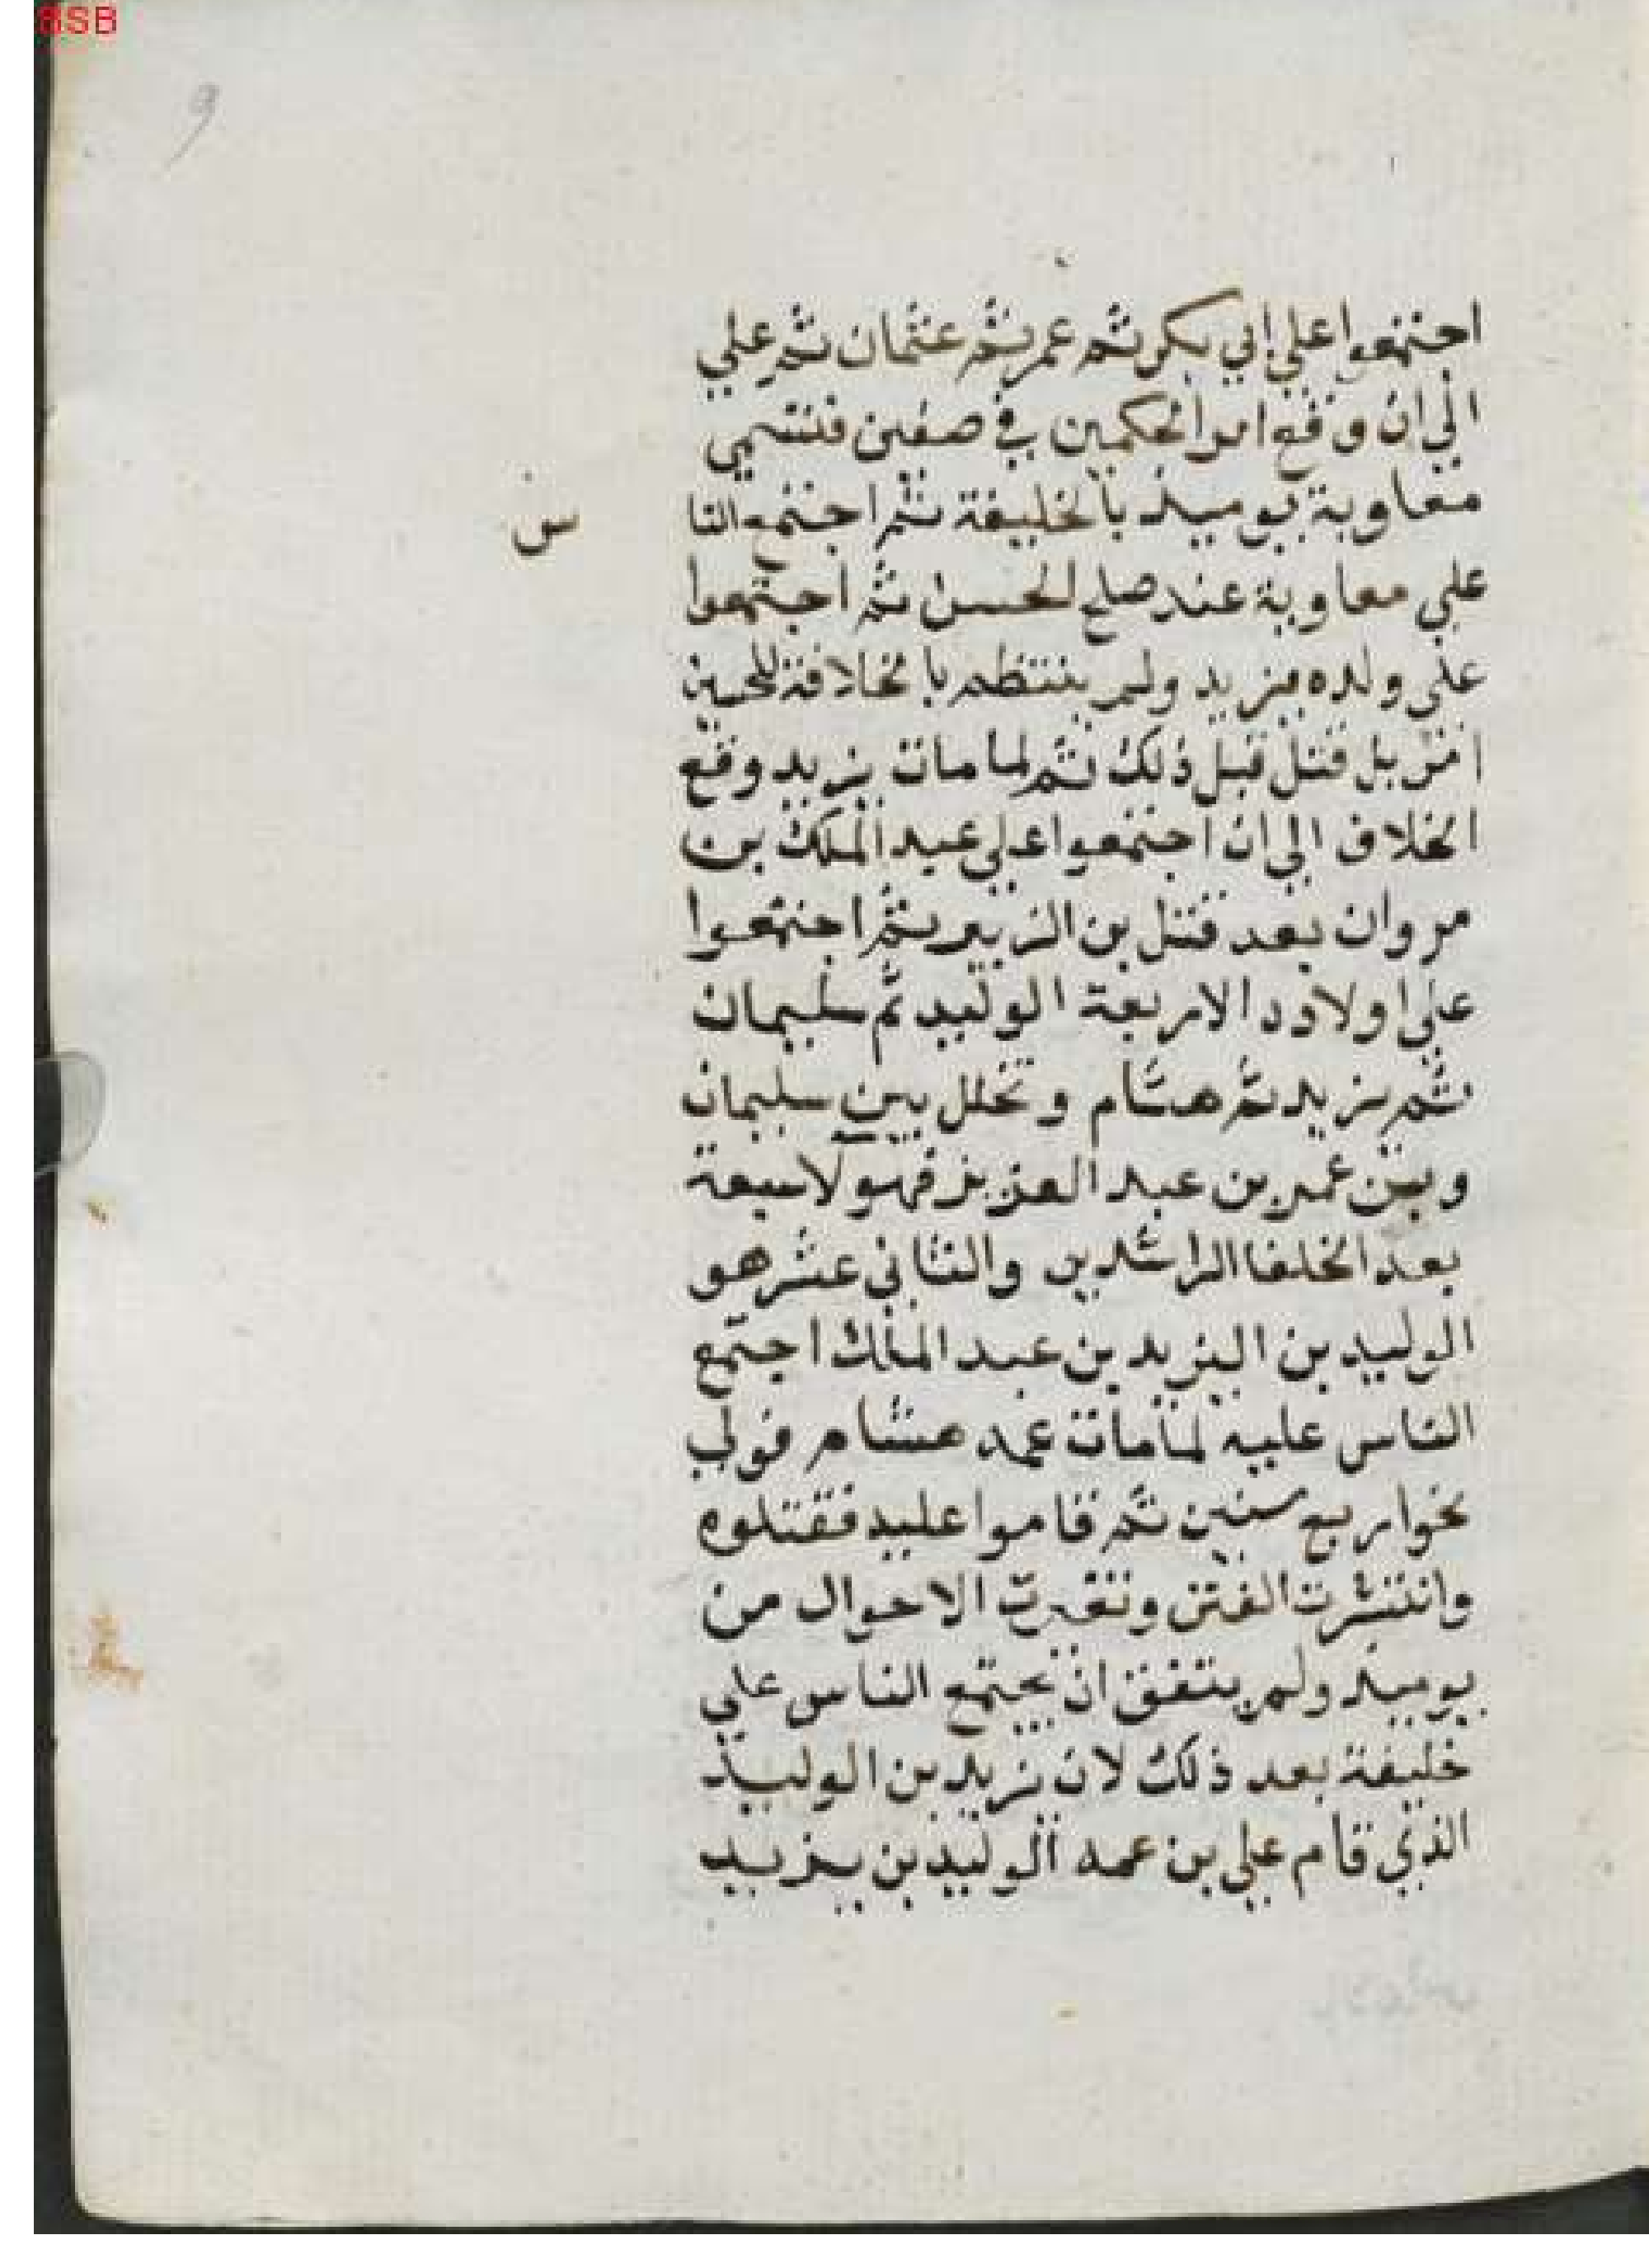 BSB
9
اجتمعوا علي ابي بكر ثم عمر ثم عثمان ثم علي
الي ان وقع امر الحكمين في صفين فتسمي
معاوية يوميذ بالخليفة ثم اجتمع النا س
علي معاوية عند صلح الحسن ثم اجتمعوا
علي ولده يزيد ولم ينتظم بالخلافة للحسين
امر بل قتل قبل ذلك ثم لما مات يزيد وقع
الخلاف الي ان اجتمعوا علي عبد الملك بن
مروان بعد قتل بن الزبير ثم اجتمعوا
علي اولاده الاربعة الوليد ثم سليمان
ثم يزيد ثم هشام وتخلل بين سليمان
وبين عمر بن عبد العزيز فهولا سبعة
بعد الخلفا الراشدين والثاني عشر هو
الوليد بن اليزيد بن عبد الملك اجتمع
الناس عليه لما مات عمه هشام فولي
نحو اربع سنين ثم قاموا عليه فقتلوه
وانتشرت الفتن وتغيرت الاحوال من
يوميذ ولم يتفق ان يجتمع الناس علي
خليفة بعد ذلك لان يزيد بن الوليد
الذي قام علي بن عمه الوليد بن يزيد